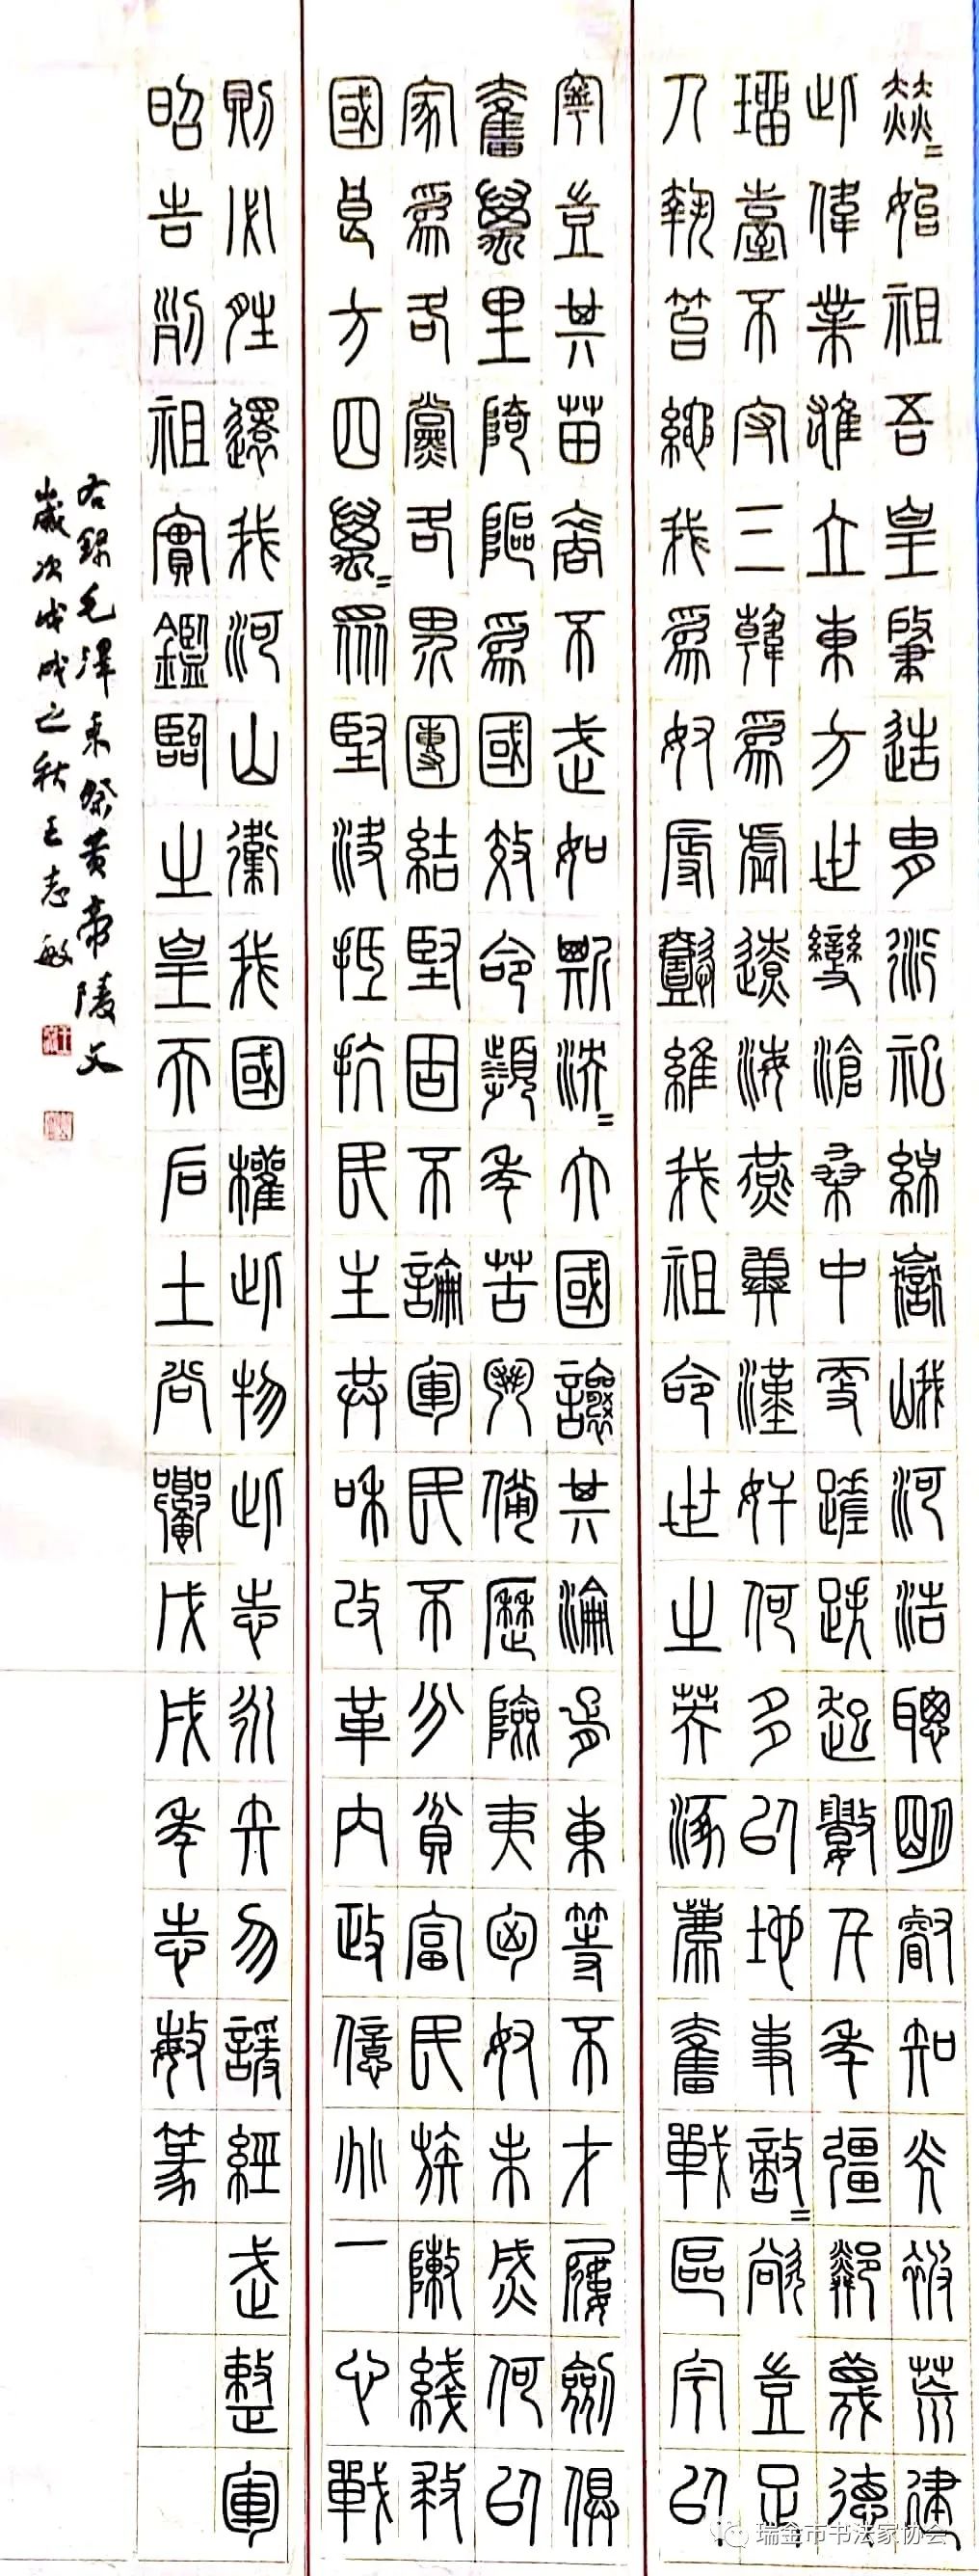 赫=始祖吾皇肇造冑衍祀綿嶽峨河浩聰明睿知光被荒建
此偉業雄立東方世變滄桑中更蹉跌越數千年彊鄰蔑德
璢臺不守三韓為虛遼海燕冀漢奸何多以地事敵=欲豈足
人執笞繩我為奴辱懿維我祖命世之英涿鹿奮戰區宇以
寧豈其苗裔不武如斯泱=大國讓其淪胥東等不才屨劍俱
奮萬里崎嶇為國效命頻年苦鬥備歷險夷匈奴未滅何以
家為各黨各界團結堅固不論軍民不分貧富民族陳綫救
國良方四萬=眾堅決抵抗民主共和改革內政億兆一心戰
則必勝還我河山衛我國權此物此志永矢勿諼經武整軍
昭告列祖實鑑臨之皇天后土尚饗戊戌年志敏篆
右錄毛澤東祭黃帝陵文
歲次戊戌之秋王志敏
瑞金市书法家协会